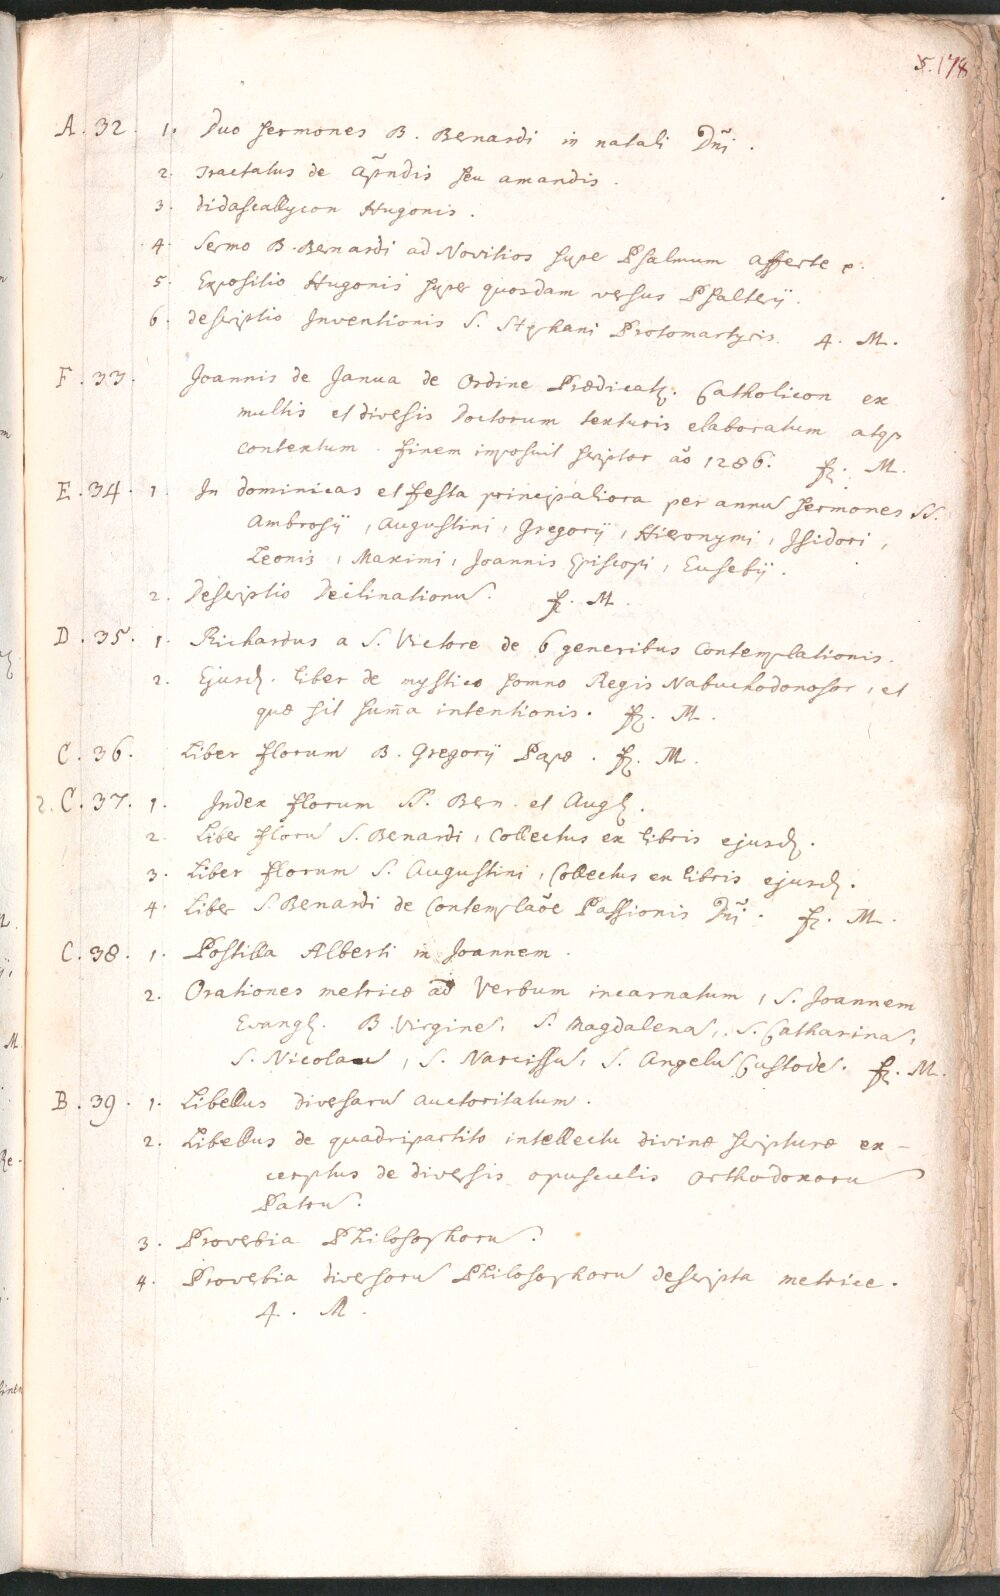 5. 178
A. 32. 1. Duo sermones B. Bernardi in natali Dñi.
2. Tractatus de apñdis seu amandis.
3. Didascallycon Hugonis.
4. Sermo B. Bernardi ad Novitios supe Psalmum afferte
5. Expositio Hugonis super quosdam versus Psalterÿ.
6. descriptio Inventionis S. Stephani Protomartyris. 4. M.
F. 33. Joannis de Janua de Ordine Prædicat. Catholicon ex
multis et diversis doctorum texturis elaboratum atq
contextum. finem imposuit scriptor aõ 1286. f. M.
E. 34. 1. In dominicas et festa principaliora per annũ sermones SS.
Ambrosÿ, Augustini, Gregorÿ, Hieronymi, Isidori,
Leonis, Maximi, Joannis Episcopi, Eusebÿ.
2. Descriptio Declinationũ. f. M.
D. 35. 1. Richardus a S. Victore de 6 generibus contemplationis.
2. Ejusd. liber de mystico somno Regis Nabuchodonosor, et
quæ sit sum̃a intentionis. f. M.
C. 36. Liber florum B. Gregorÿ Papæ. f. M.
2. C. 37. 1. Index florum SS. Bern. et Aug.
2. Liber florũ S. Benardi, Collectus ex libris ejusd.
3. Liber florum S. Augustini, Collectus ex libris ejusd.
4. Liber S. Benardi de Contemplaõe Passionis Dñi. f. M.
C. 38. 1. Postilla Alberti in Joannem.
2. Orationes metricæ ad Verbum incarnatum, S. Joannem
Evang. B. Virginẽ, S. Magdalenã, S. Catharinã,
S. Nicolaũ, S. Narcissũ, S. Angelũ Custodẽ. f. M.
B. 39. 1. Libellus diversarũ auctoritatum.
2. Libellus de quadripartito intellectu divinæ scripturæ ex-
cerptus de diversis opusculis orthodoxorũ
Patrũ.
3. Proverbia Philosophorũ.
4. Proverbia diversorũ Philosophorũ descripta metrice.
4. M.